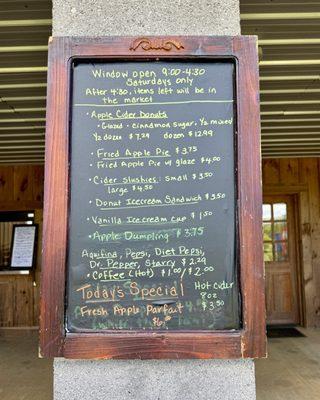 Window open 9:00-4:30
Saturdays only
After 4:30, items left will be
in the market
• Apple Cider Donuts
• Glazed • cinnamon sugar, ½ mixed
½ doz $7.29 dozen $12.99
• Fried Apple Pie $3.75
• Fried Apple Pie w/ glaze $4.00
• Cider slushies: small $3.50
large $4.50
• Donut Icecream Sandwich $3.50
• Vanilla Icecream Cup $1.50
• Apple Dumpling $5.75
Aquafina, Pepsi, Diet Pepsi,
Dr. Pepper, Starry $2.29
• Coffee (Hot) $1.00/$2.00
Today's Special
Hot Cider
8oz
$3.50
Fresh Apple Parfait